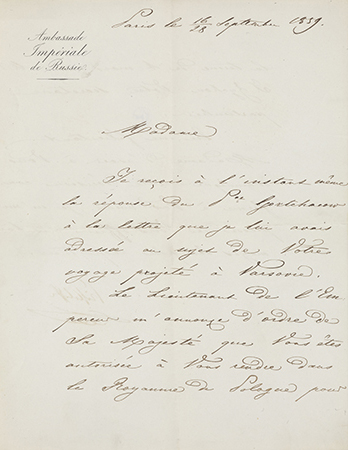 Paris le 16/28 Septembre 1859.
Ambassade
Impériale
de Russie.
Madame
Je reçois à l'instant même
la réponse du Pce Gortchacow
à la lettre que je lui avais
adressée au sujet de Votre
voyage projeté à Varsovie.
Le Lieutenant de l'Em
pereur m'annonce, d'ordre de
Sa Majesté que Vous êtes
autorisée à Vous rendre dans
le Royaume de Pologne pour